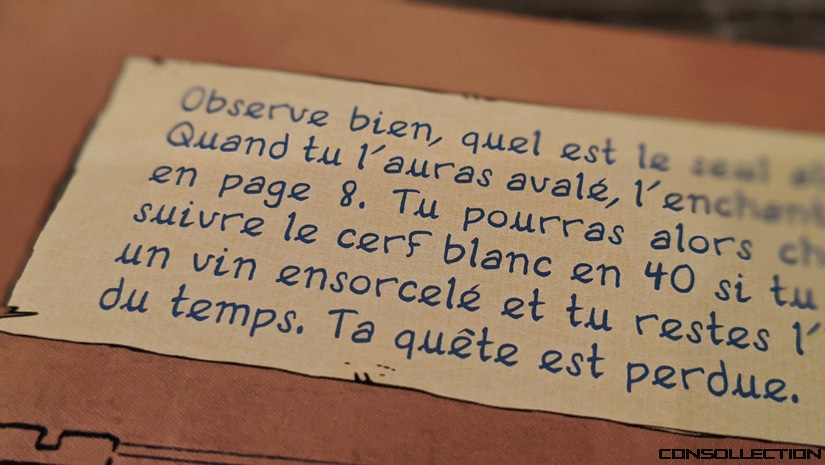 Observe bien, quel est le seul
Quand tu l'auras avalé, l'enchant
en page 8. Tu pourras alors ch
suivre le cerf blanc en 40 si tu
un vin ensorcelé et tu restes l'
du temps. Ta quête est perdue.
CONSOLLECTION